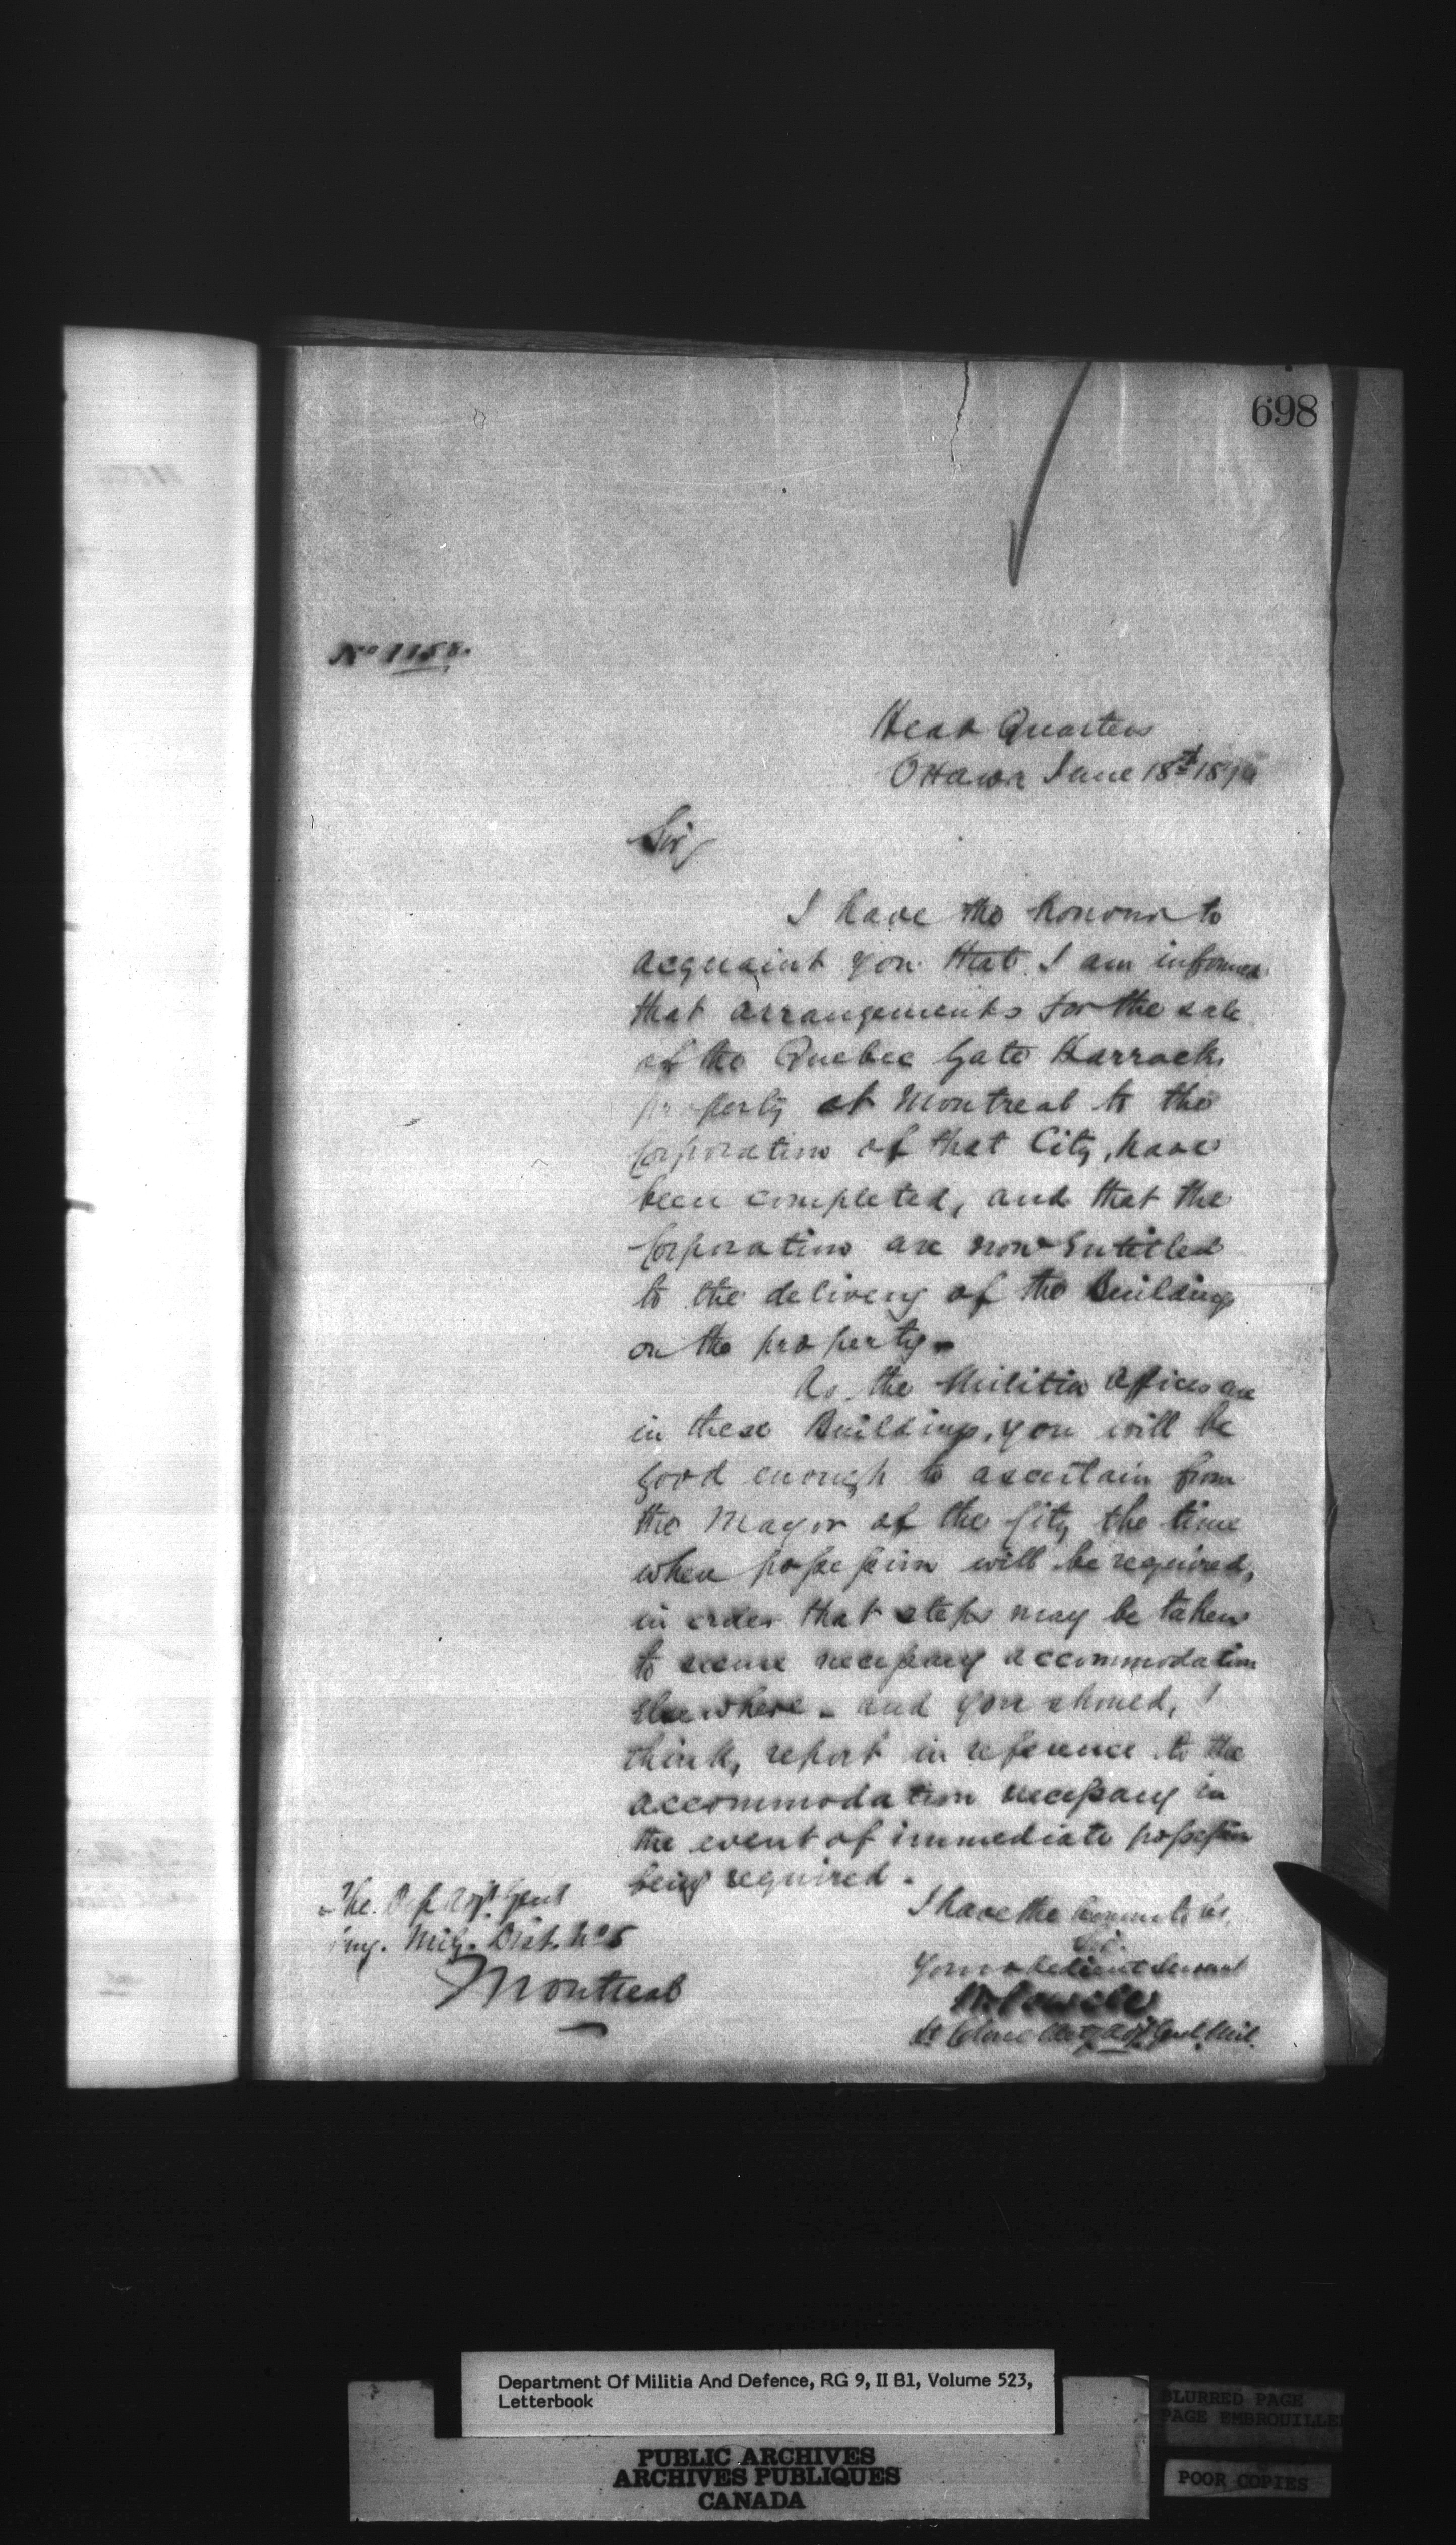 698
No 1158.
Head Quarters
Ottawa June 18th 187
Sir,
I have the honour to
acquaint you that I am informed
that arrangements for the sale
of the Quebec Gate Barracks
property at Montreal to the
Corporation of that City, have
been completed, and that the
Corporation are now entitled
to the delivery of the Buildings
on the property.
As the Militia Offices are
in these Buildings, you will be
good enough to ascertain from
the Mayor of the City the time
when possession will be required,
in order that steps may be taken
to secure necessary accommodation
elsewhere - and you should, I
think, report in reference to the
accommodation necessary in
the event of immediate possession
being required.
I have the honour to be,
Sir.
Your obedient servant
W Powell
Lt Colonel Actg Adjt Genl. Mil.
The Dep Adjt Genl
Comg. Mily. Dist. No 5
Montreal
Department Of Militia And Defence, RG 9, II B1, Volume 523,
Letterbook
PUBLIC ARCHIVES
ARCHIVES PUBLIQUES
CANADA
BLURRED PAGE
PAGE EMBROUILLEE
POOR COPIES